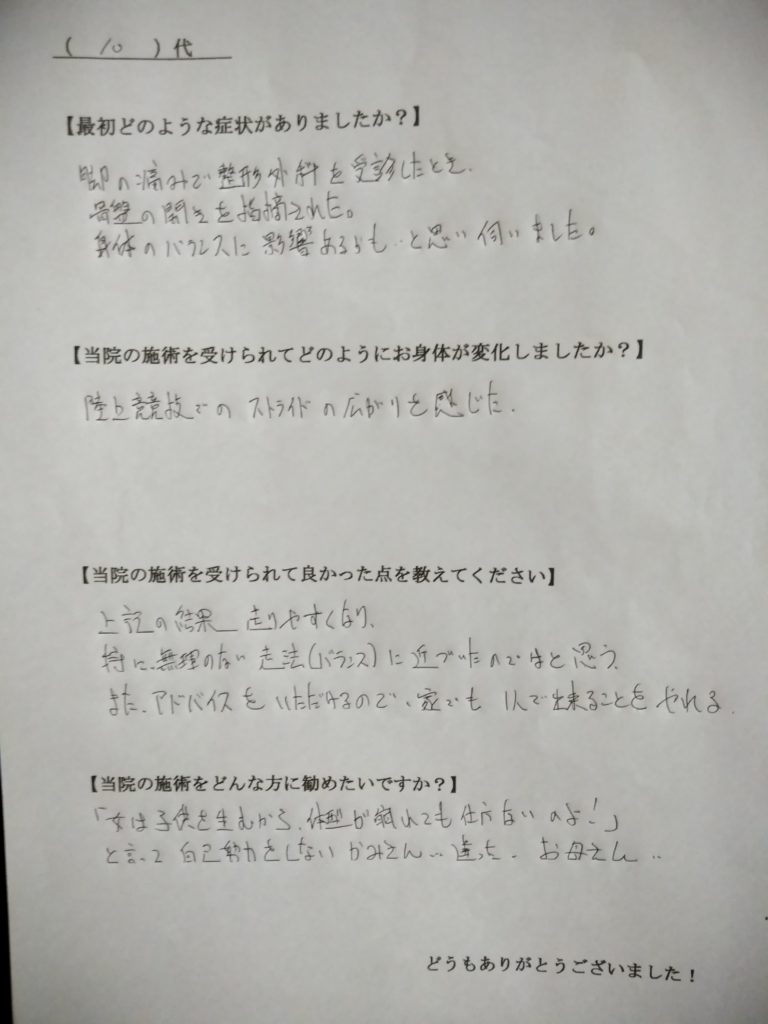 ( 10 )代
【最初どのような症状がありましたか？】
脚の痛みで整形外科を受診したとき、
骨盤の開きを指摘された。
身体のバランスに影響あるかも…と思い伺いました。
【当院の施術を受けられてどのようにお身体が変化しましたか？】
陸上競技でのストライドの広がりを感じた。
【当院の施術を受けられて良かった点を教えてください】
上記の結果 走りやすくなり、
特に、無理のない走法(バランス)に近づいたのではと思う。
また、アドバイスをいただけるので、家でも1人で出来ることをやれる。
【当院の施術をどんな方に勧めたいですか？】
「女は子供を生むから、体型が崩れても仕方ないのよ！」
と言って自己努力をしないかみさん‥違った、お母さん‥
どうもありがとうございました！